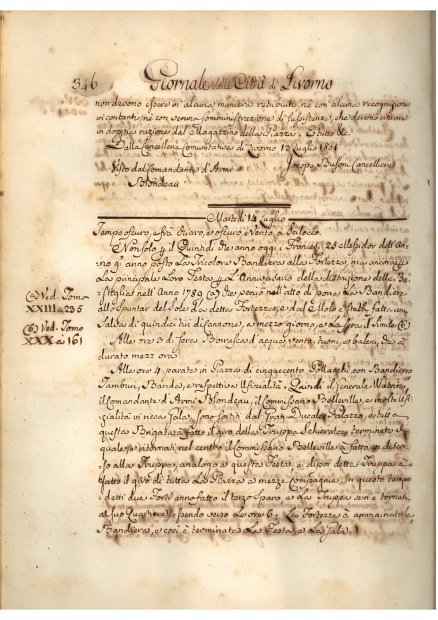 346 Giornale della Città di Livorno
non devono essere in alcuna maniera retribuiti, nè con alcuna recognizione
in contanti, nè con veruna somministrazione di sussistenza, che devono ritirare
in doppia razione dal Magazzino della Piazza
Dalla Cancelleria Comunitativa di Livorno 13 Luglio 1801
Visto dal Comandante d'Armi Jacopo Cancelliere
Blondeau
Martedi 14 Luglio
Tempo oscuro, e frà chiaro, e oscuro, e vento a Scilocco
Non solo
ànno posto la tricolore Bandiera alla Fortezza, mà ancora
La principale Loro Festa L'Anniversario della distruzione della Ba-
stiglia nell'Anno 1789 (a)
allo Spuntar del Sole La detta Fortezza, e dal Molo fatta una
Salva di quindici tiri di Cannone, a mezzo giorno, e La sera il Simile (b)
(a) Ved. Tomo
XXIII a 235
(b) Ved. Tomo
XXX a 161
Alle ore 3 di sera Borrasca d'acqua, vento, tuoni, e baleni,
durato mezz'ora
Alle ore 4 parata in Piazza di cinquecento Pollacchi con Bandiera
Tamburi, Banda, e respettiva Ufizialità. Quindi il Generale Watrin,
il Comandante d'Armi Blondeau, il Commissario Belleville, e molta ufi-
zialità in ricca Gala, sono sortiti dal Gran Ducale Palazzo, e tutta
questa Brigata à fatto il giro della Truppa Schierata, e terminato il
quale, ritornati nel centro il Commissario Belleville à fatto un discor-
so alla Truppa, analogo a questa Festa, e dipoi detta Truppa à
fatto il giro di tutta La Piazza a mezze Compagnie. In questo tempo
i detti due Forti ànno fatto il terzo sparo, e La Truppa
al suo Quartiere essendo verso Le ore 6. La Fortezza à ammainata la
Bandiera, e così è terminata La Festa, e La Gala.